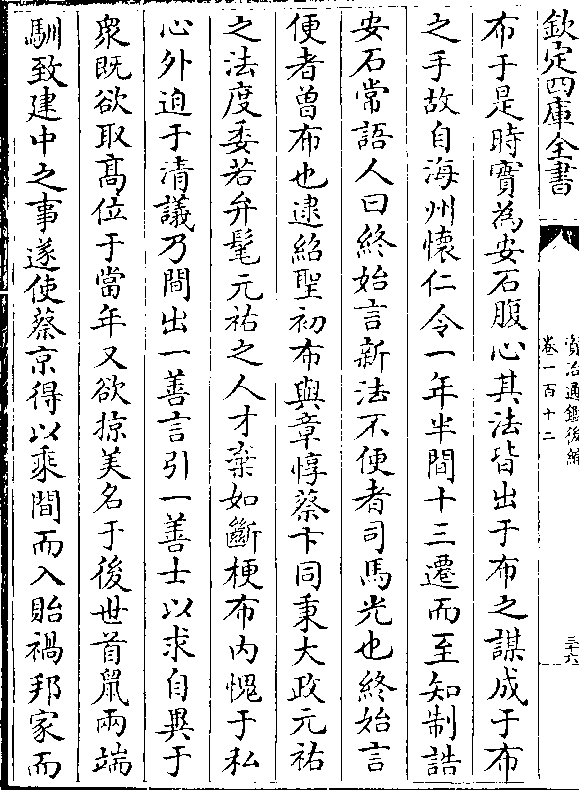 欽定四庫全書
資治通鑑後編
卷一百十二
三十六
布于是時實為安石腹心其法皆出于布之謀成于布
之手故自海州懷仁令一年半間十三遷而至知制誥
安石常語人曰終始言新法不便者司馬光也終始言
便者曽布也逮紹聖初布與章惇蔡卞同秉大政元祐
之法度委若弁髦元祐之人才棄如斷梗布内愧于私
心外迫于清議乃間出一善言引一善士以求自異于
衆既欲取髙位于當年又欲掠美名于後世首鼠兩端
馴致建中之事遂使蔡京得以乘間而入貽禍邦家而